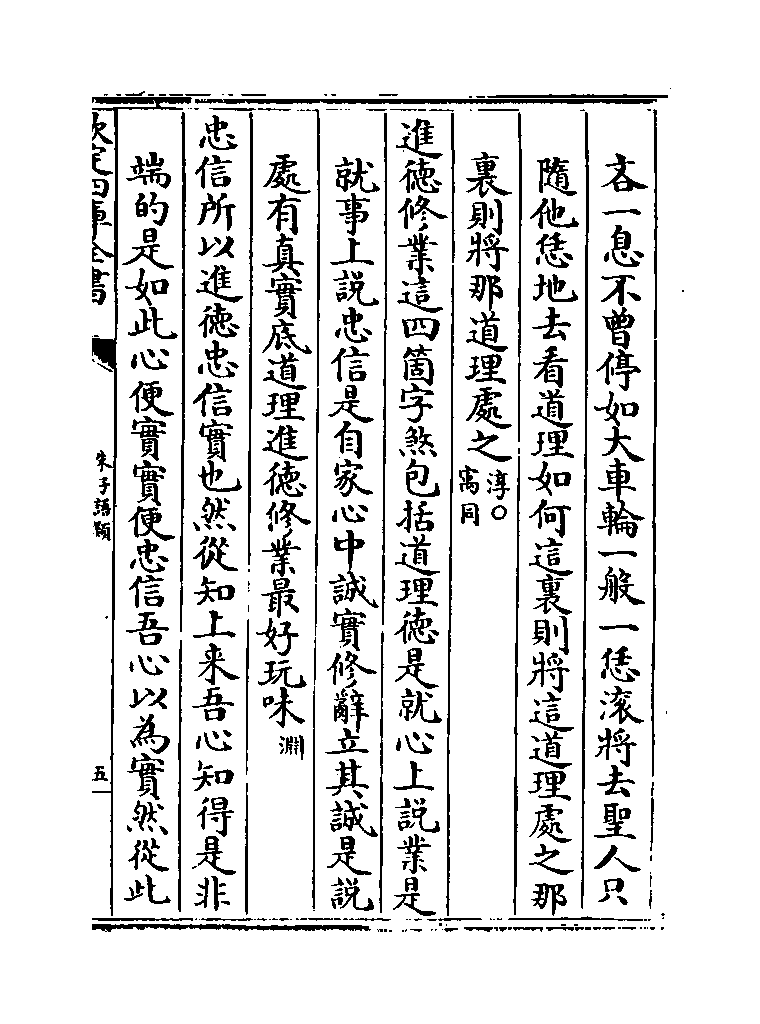 吝一息不曾停如大車輪一般一恁滚將去聖人只
隨他恁地去看道理如何這裏則將這道理處之那
裏則將那道理處之淳○寓同
進徳修業這四箇字煞包括道理徳是就心上説業是
就事上説忠信是自家心中誠實修辭立其誠是説
處有真實底道理進徳修業最好玩味淵
忠信所以進徳忠信實也然從知上来吾心知得是非
端的是如此心便實實便忠信吾心以為實然從此
欽定四庫全書
朱子語類
五